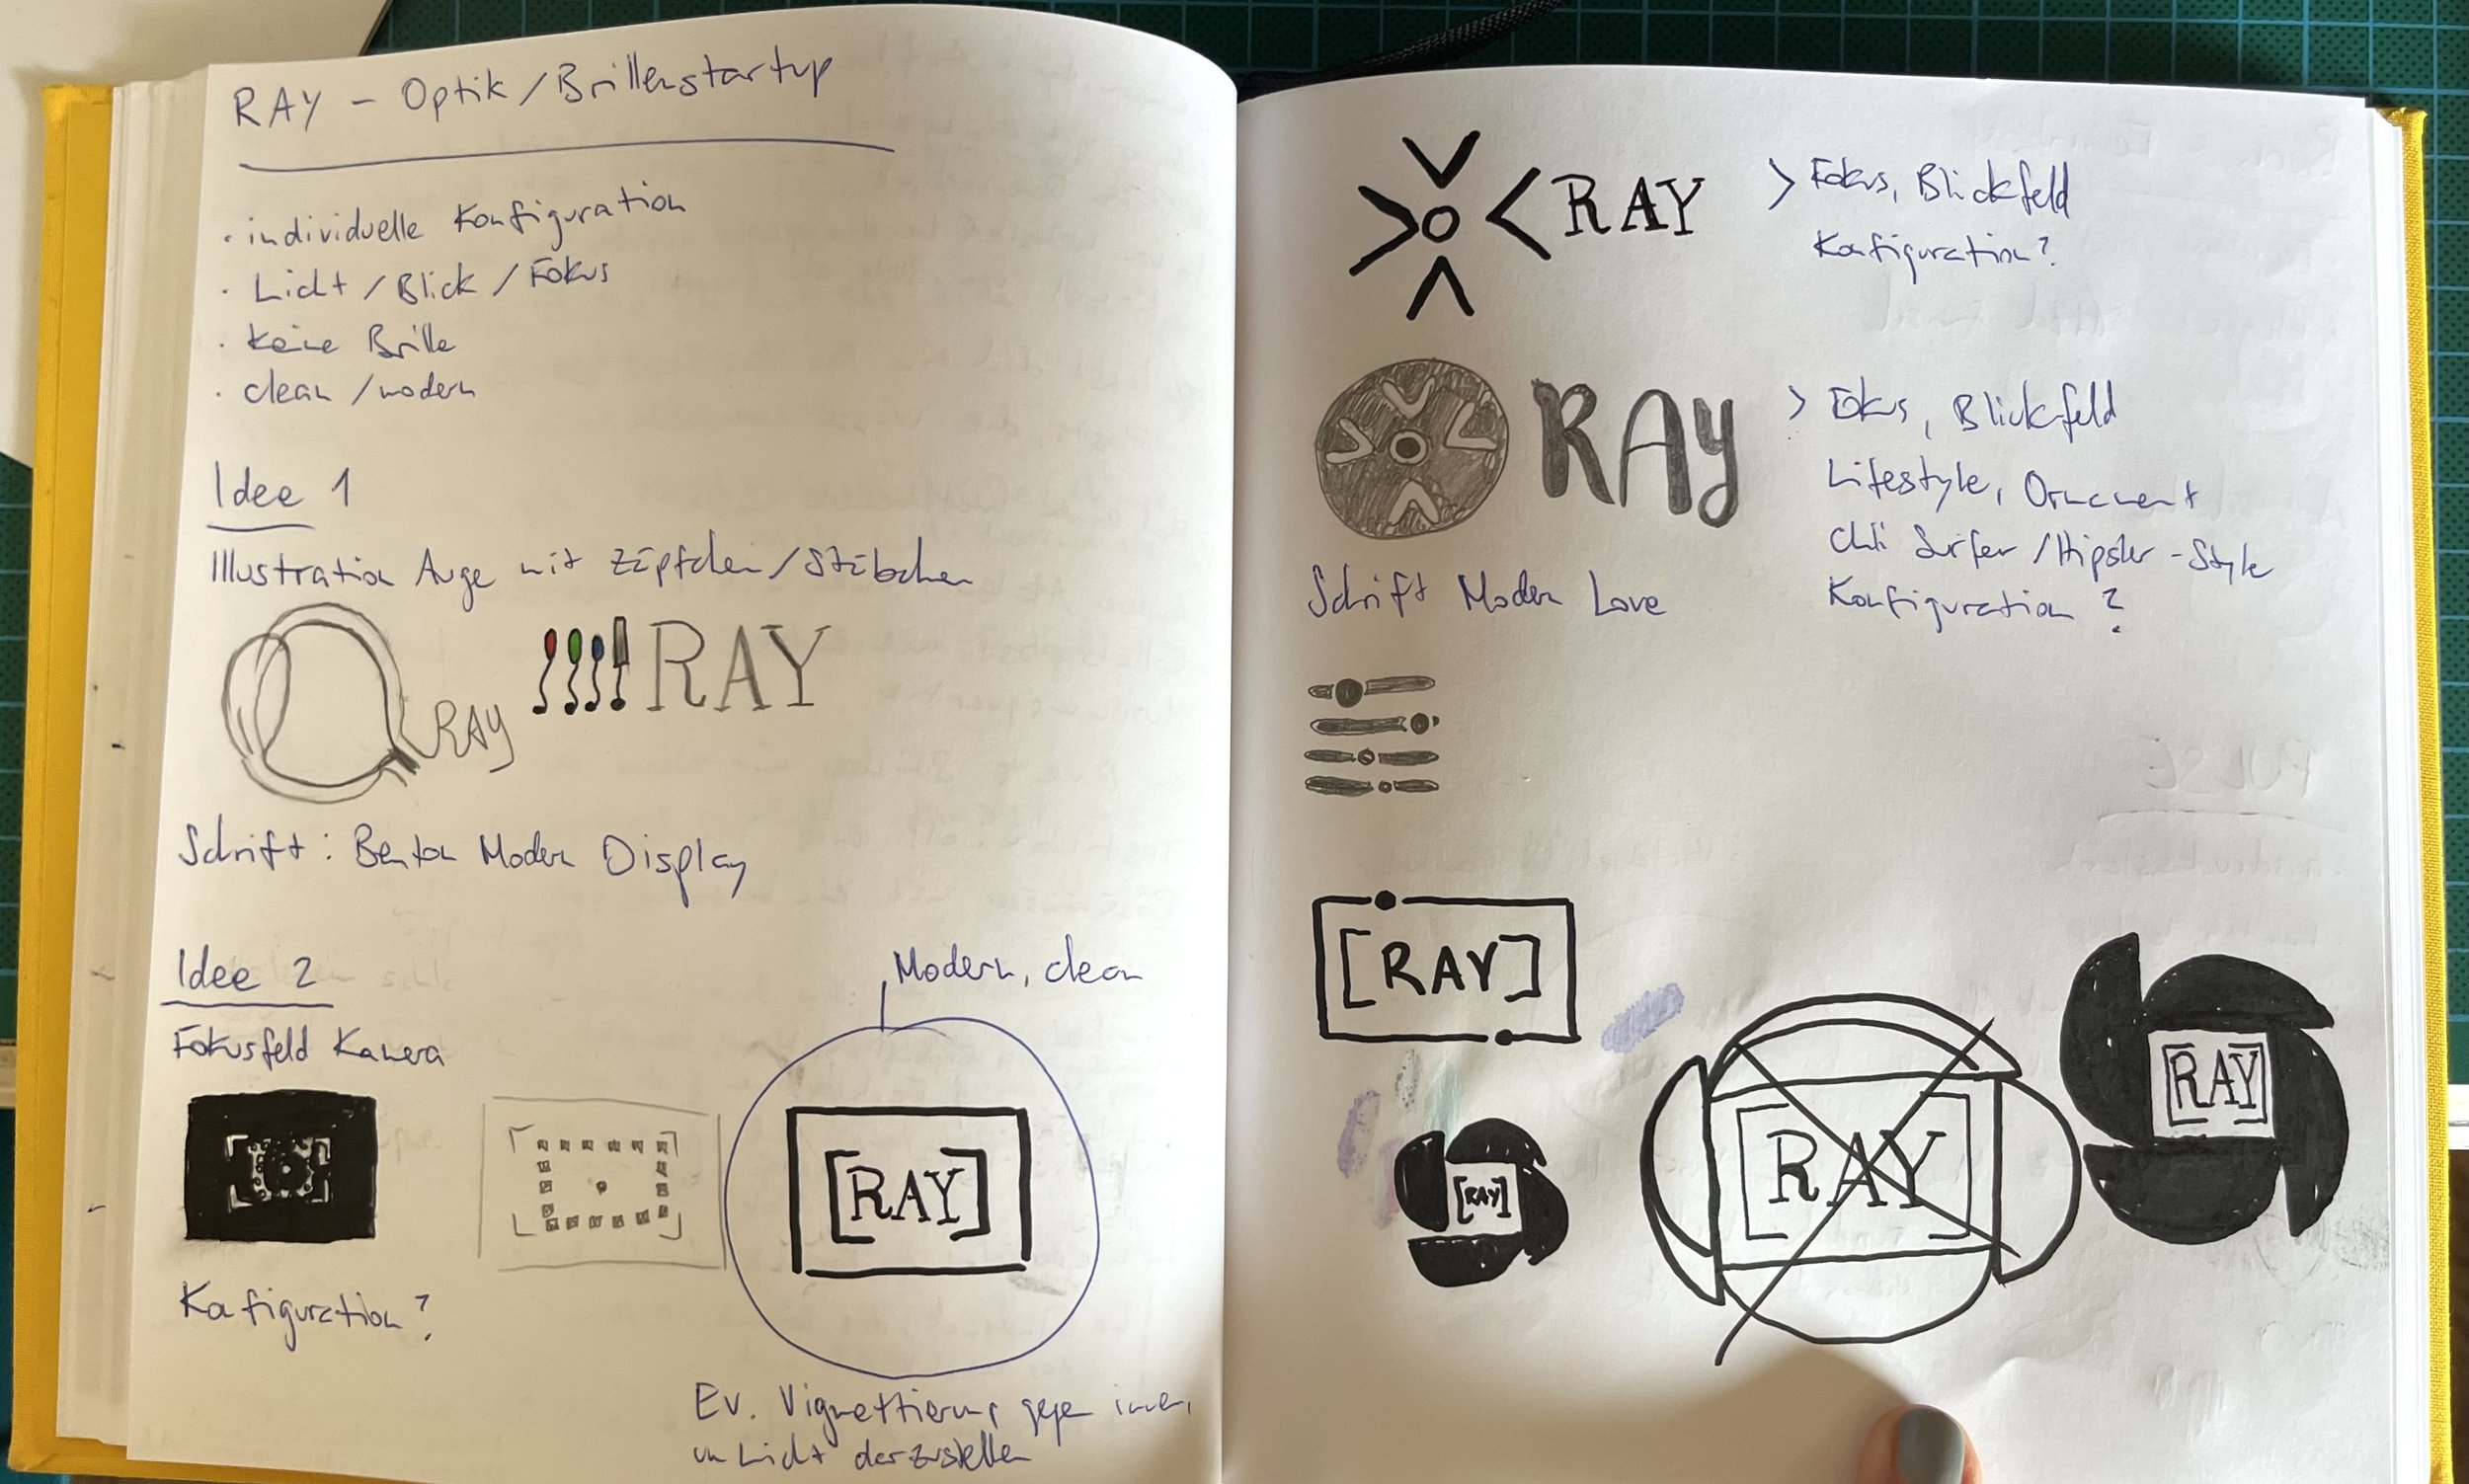 RAY – Optik/Brillenstartup
· individuelle Konfiguration
· Licht/Blick/Fokus
· keine Brille
· clean/modern
Idee 1
Illustration Auge mit Zäpfchen/Stäbchen
RAY
RAY
Schrift: Benton Modern Display
Idee 2
Modern, clean
Fokusfeld Kamera
[RAY]
Konfiguration?
Ev. Vignettierung gegen innen,
um Licht darzustellen
RAY
> Fokus, Blickfeld
Konfiguration?
RAY
> Fokus, Blickfeld
Lifestyle, Ornament
chli Surfer/Hipster-Style
Konfiguration?
Schrift Modern Love
[RAY]
[RAY]
[RAY]
[RAY]